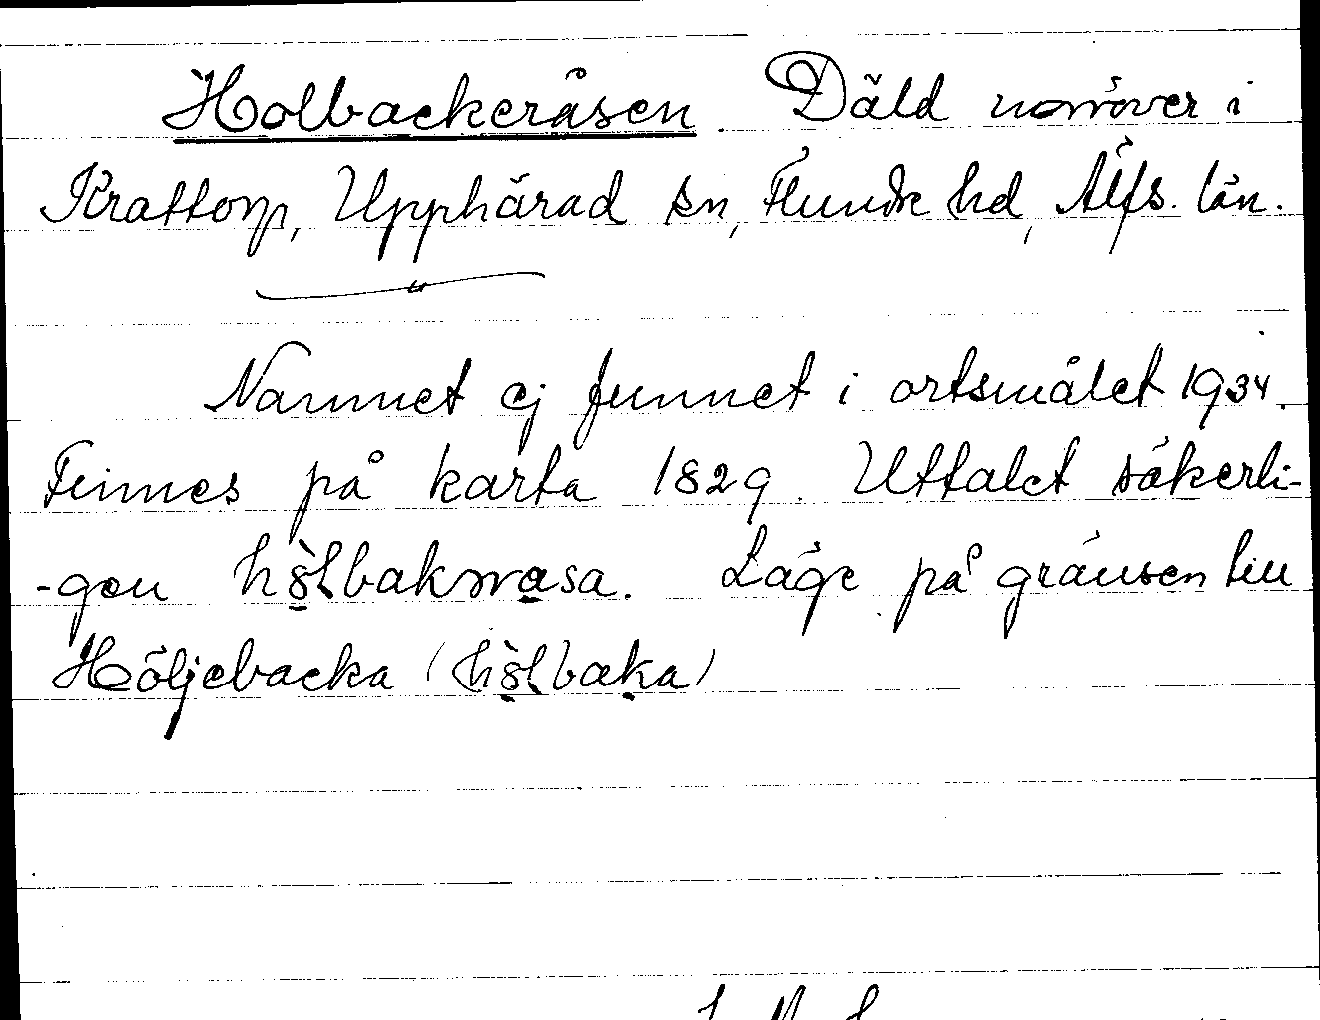 Holbackeråsen. Däld norröver i
Krattorp, Upphärad sn, Flundre hd, Älfs. län.
Namnet ej funnet i ortsmålet 1934.
Finnes på karta 1829. Uttalet säkerli-
-gen Läge på gränsen till
Höljebacka